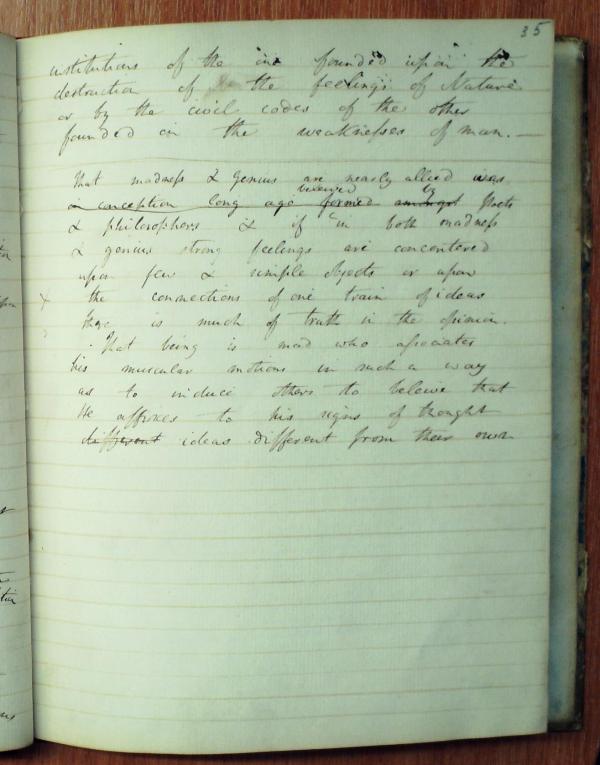 35
institutions of the one founded upon the
destruction of the feelings of Nature
or by the civil codes of the other
founded in the weaknesses of man. —
That madness & genius are nearly allied was
believed by
a conception long ago formed amongst Poets
& philosophers & if in both madness
& genius strong feelings are concentered
upon few & simple objects or upon
x the connections of one train of ideas
there is much of truth in the opinion.
That being is mad who associates
his muscular motions in such a way
as to induce others to beleive that
He affixes to his signs of thought
different ideas different from their own